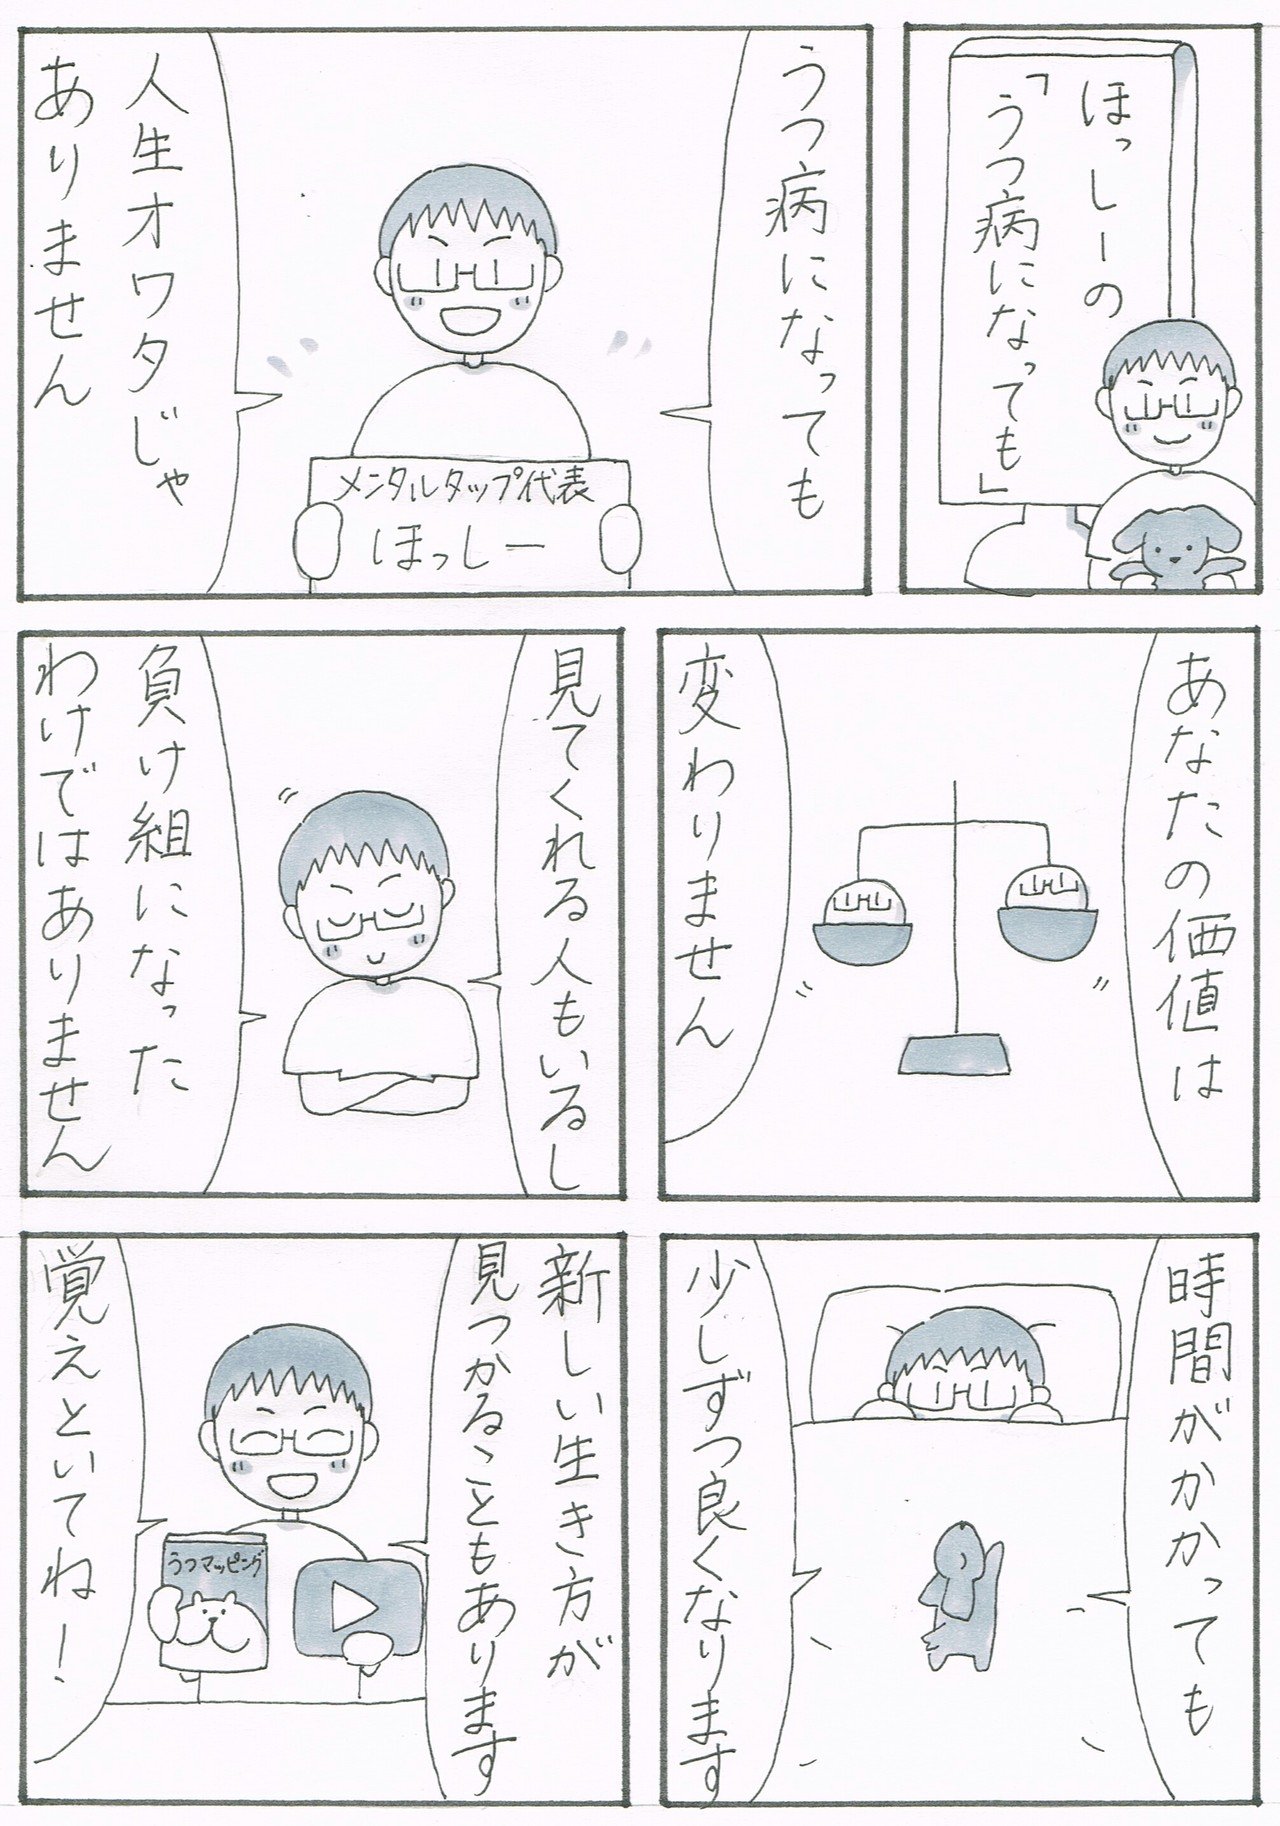 ほっしーの
「うつ病になっても」
うつ病になっても
メンタルタップ代表
ほっしー
人生オワタじゃ
ありません
あなたの価値は
変わりません
見てくれる人もいるし
負け組になった
わけではありません
時間がかかっても
少しずつ良くなります
新しい生き方が
見つかることもあります
うつマッピング
覚えといてね!